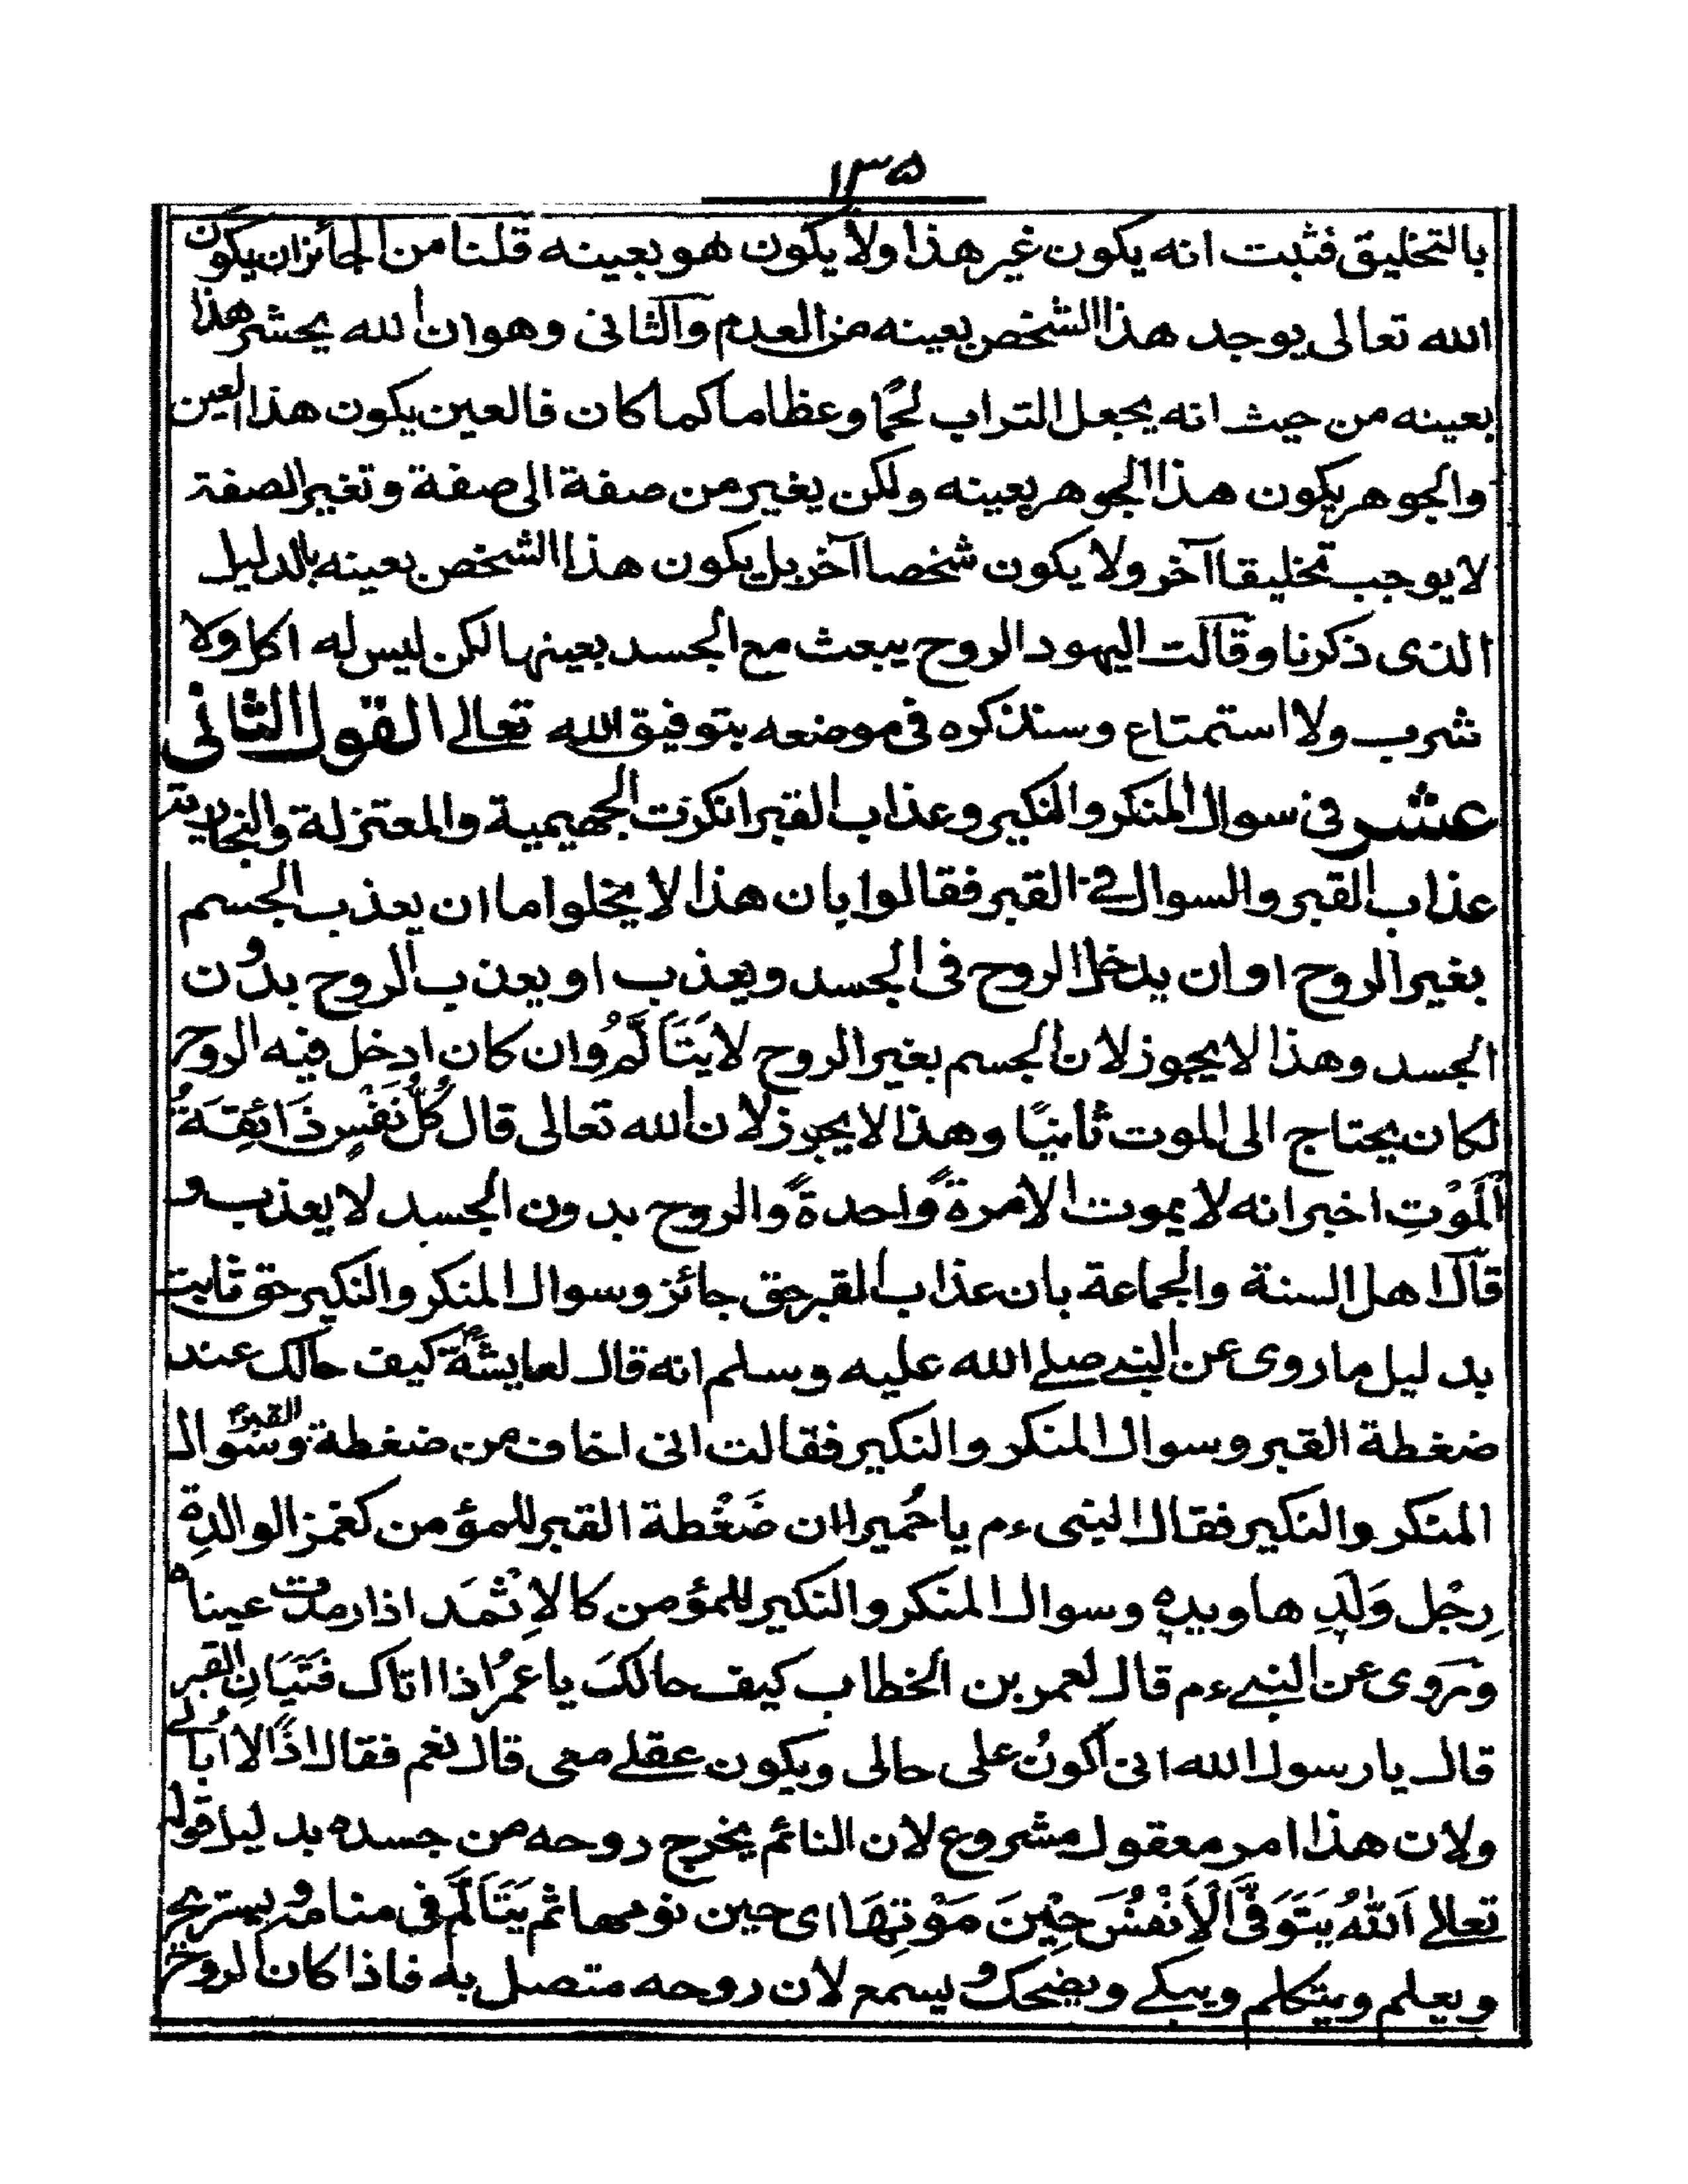 ١٣٥
بالتخليق فثبت انه يكون غير هذا ولا يكون هو بعينه قلنا من الجائزان يكون
الله تعالى يوجد هذا الشخص بعينه من العدم والثانى وهوان الله يحشر هذا
بعينه من حيث انه يجعل التراب لحمًا وعظاما كما كان فالعين يكون هذا العين
والجوهر يكون هذا الجوهر بعينه ولكن يغير من صفة الى صفة وتغير الصفة
لا يوجب تخليقا آخر ولا يكون شخصا آخر بل يكون هذا الشخص بعينه بالدليل
الذى ذكرنا وقالت اليهود الروح يبعث مع الجسد بعينها لكن ليس له اكل ولا
شرب ولا استمتاع وسنذكره فى موضعه بتوفيق الله تعالى القول الثانى
عشر فى سوال المنكر والنكير وعذاب القبر انكرت الجهيمية والمعتزلة والنجارية
عذاب القبر والسوال فے القبر فقالوا بان هذا لا يخلوا ما ان يعذب الجسم
بغير الروح او ان يدخل الروح فى الجسد ويعذب او يعذب الروح بدون
الجسد وهذا لا يجوز لان الجسم بغير الروح لا يَتَاَلَّمُ وان كان ادخل فيه الروح
لكان يحتاج الى الموت ثانيًا وهذا لا يجوز لان الله تعالى قال كُلُّ نَفْسٍ ذَائِقَةُ
الْمَوْتِ اخبر انه لا يموت الا مرةً واحدةً والروح بدون الجسد لا يعذب و
قال اهل السنة والجماعة بان عذاب القبر حق جائز وسوال المنكر والنكير حق ثابت
بدليل ما روى عن النبے صلے الله عليه وسلم انه قال لعايشةؓ كيف حالك عند
ضغطة القبر وسوال المنكر والنكير فقالت انى اخاف من ضغطة القبر وسوال
المنكر والنكير فقال النبى ءم يا حُميرا ان ضَغْطة القبر للمؤمن كغمز الوالدةِ
رِجْل وَلَدِ ها وبيده وسوال المنكر والنكير للمؤمن كالاِثْمَد اذا رمدت عيناه
ورَوى عن النبے ءم قال لعمر بن الخطاب كيف حالكَ يا عمرُ اذا اتاك فَتَيَانِ القبر
قال يا رسول الله انى اكونُ على حالى ويكون عقلے معى قال نعم فقال اذًا لا اُبالے
ولان هذا امر معقول مشروع لان النائم يخرج روحه من جسده بدليل قوله
تعالے اَللّٰهُ يَتَوَفَّى الْاَنْفُسَ حِيْنَ مَوْتِهَا اى حين نومها ثم يَتَاَلَّمُ فى منامه ويستريح
ويعلم ويتكلم ويبكے ويضحك ويسمع لان روحه متصل به فاذا كان الروح